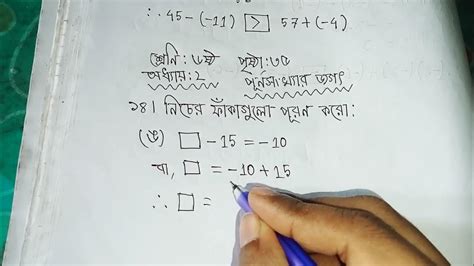 ∴ 45 - (-11) [>] 57 + (-4)
শ্রেনি : ৬ষ্ঠ পৃষ্ঠা : ৩৫
অধ্যায় : ২ পূর্নসংখ্যার জগৎ
১৪। নিচের ফাঁকাগুলো পূরন করো :
(ঙ) □ - 15 = -10
বা, □ = -10 + 15
∴ □ =